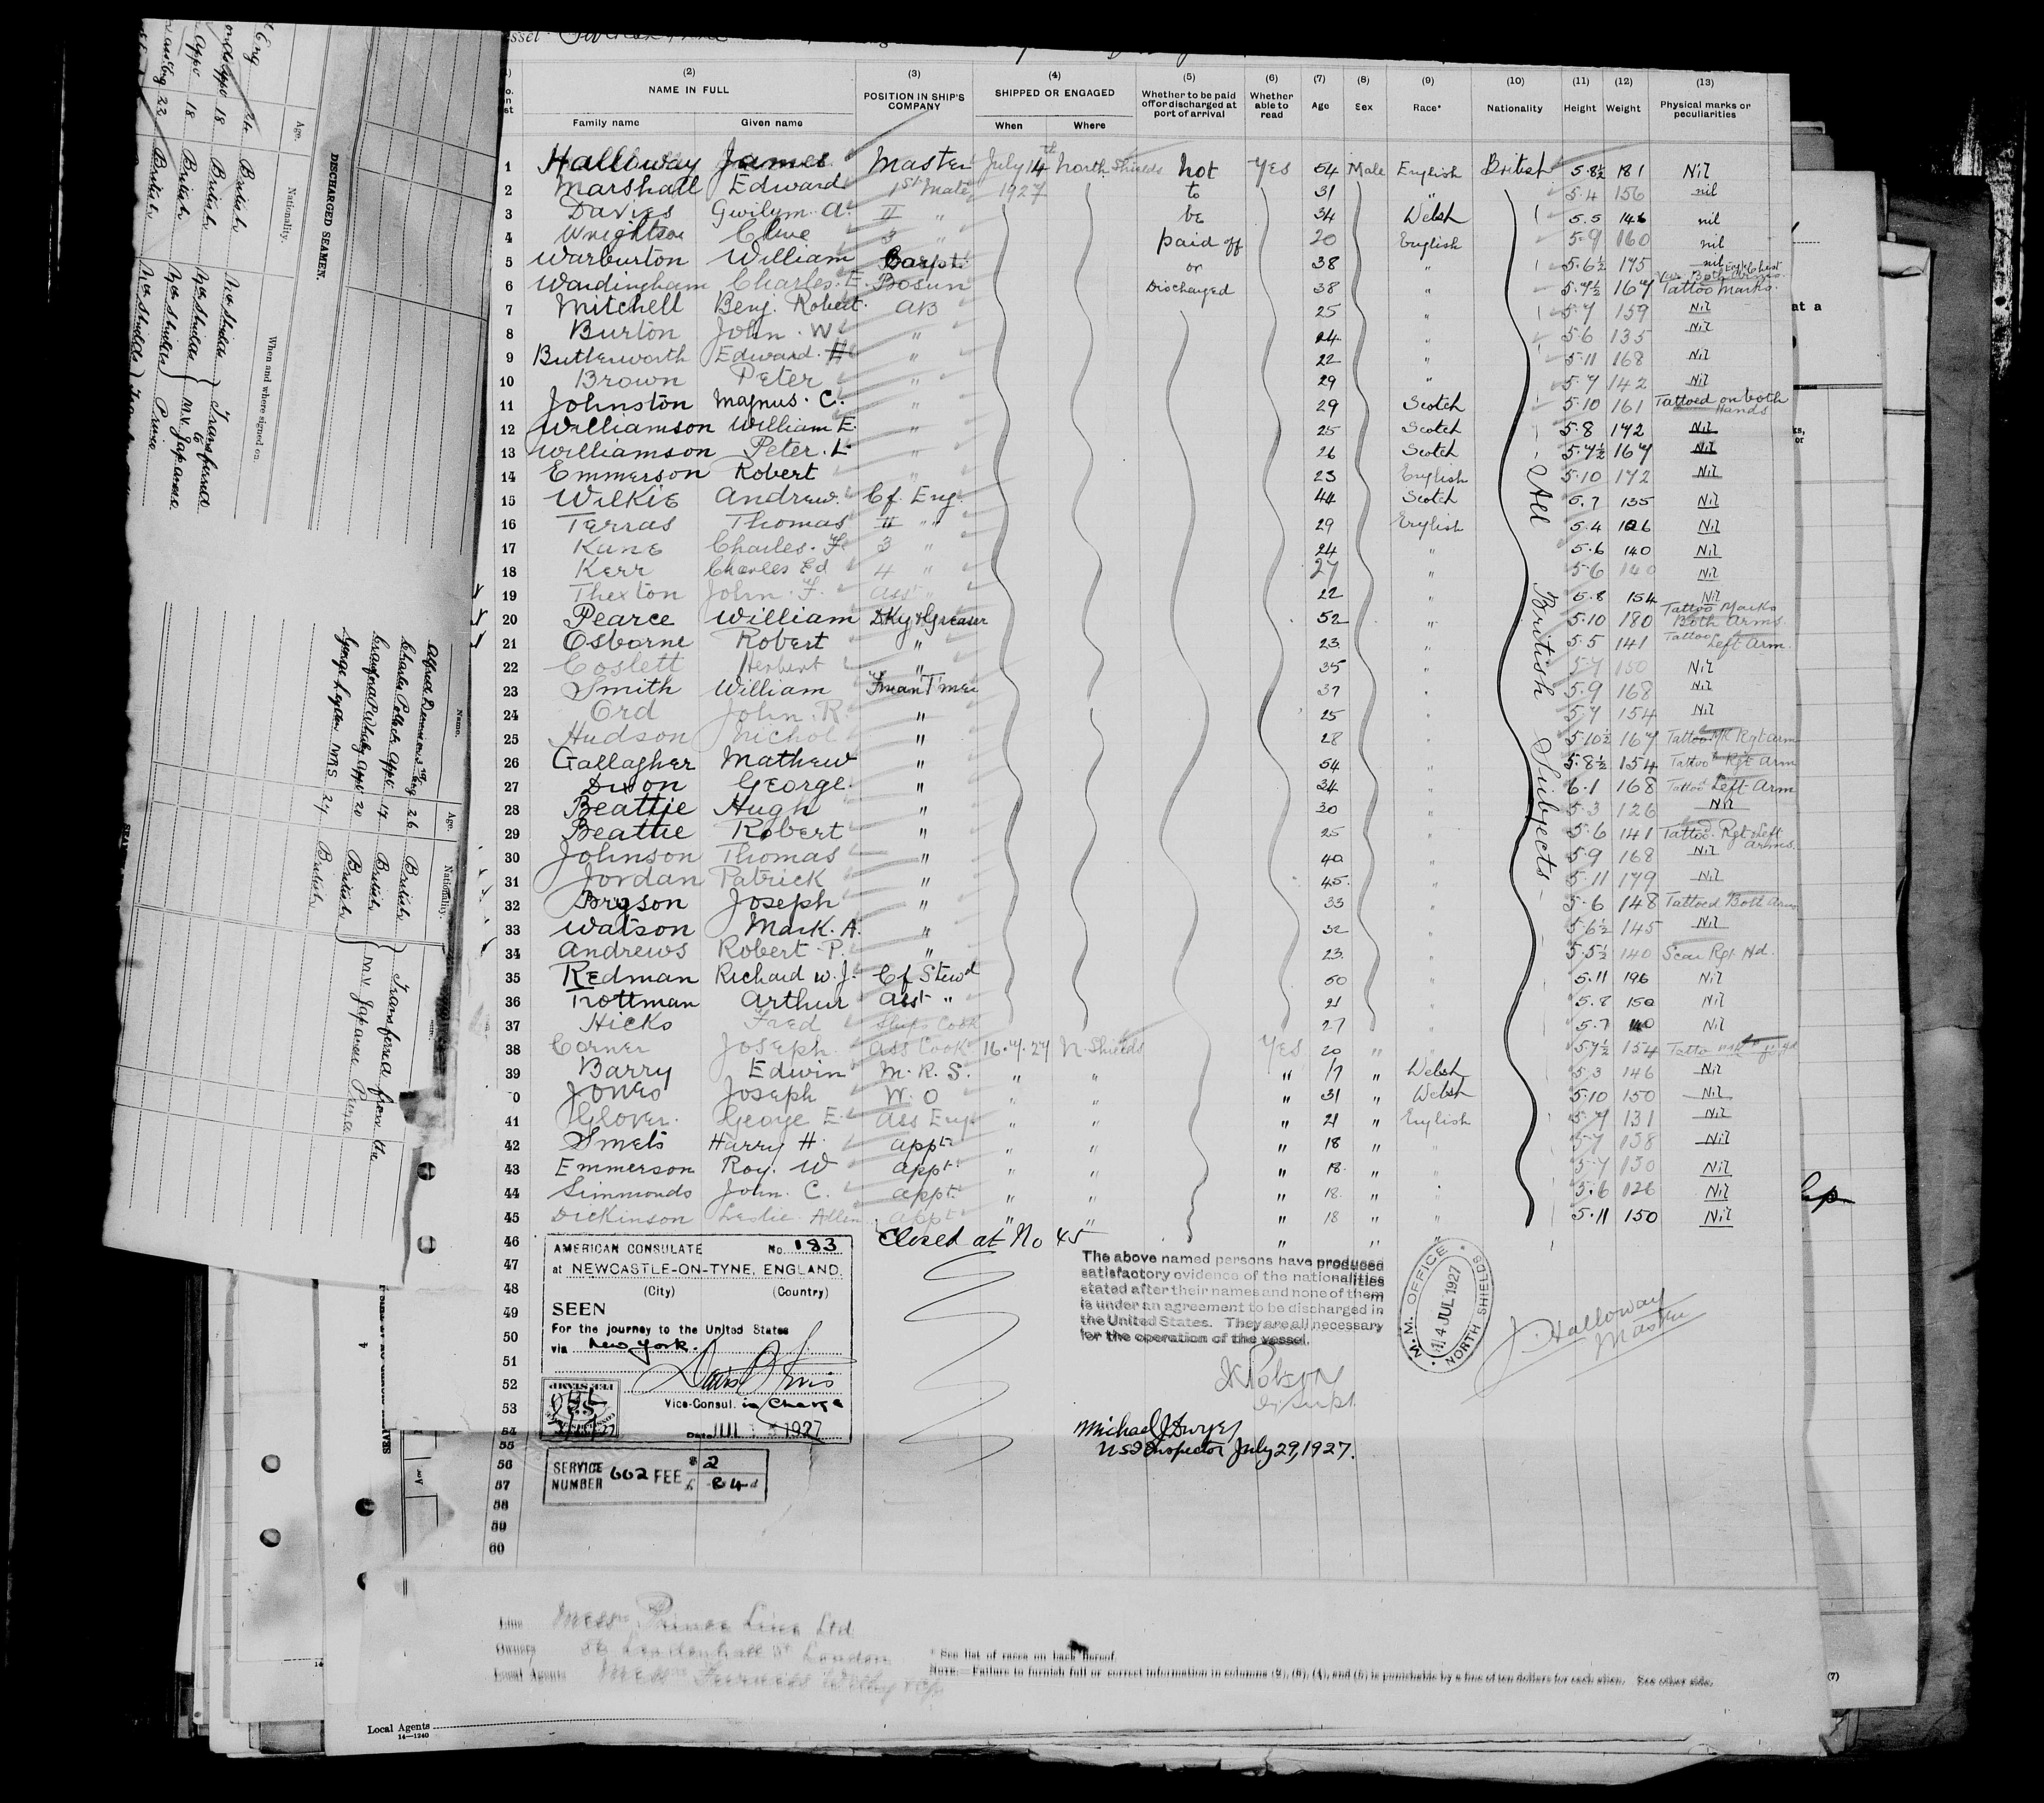 (2) (3) (4) (5) (6) (7) (8) (9) (10) (11) (12) (13)
NAME IN FULL POSITION IN SHIP'S COMPANY SHIPPED OR ENGAGED Whether to be paid off or discharged at port of arrival Whether able to read Age Sex Race* Nationality Height Weight Physical marks or peculiarities
Family name Given name When Where
1 Halloway James Master July 14th North Shields not Yes 54 Male English British 5·8½ 181 Nil
2 Marshall Edward 1st Mate 1927 to 31 " 5·4 156 nil
3 Davies Gwilym. A. II " be 34 Welsh 5·5 146 nil
4 Wrightson Clive 3 " paid off 20 English 5·9 160 nil
5 Warburton William Carpt. or 38 " 5·6½ 175 nil
6 Wardingham Charles. E. Bosun Discharged 38 " 5·7½ 167 Tattoo Marks.
7 Mitchell Benj. Robert. AB 25 " 5·7 159 Nil
8 Burton John. W " 24 " 5·6 135 Nil
9 Butterworth Edward. H " 22 " 5·11 168 Nil
10 Brown Peter " 29 " 5·7 142 Nil
11 Johnston Magnus. C. " 29 Scotch 5·10 161 Tattoed on both Hands
12 Williamson William E. " 25 Scotch 5·8 172 Nil
13 Williamson Peter. L " 26 Scotch 5·7½ 167 Nil
14 Emmerson Robert " 23 English 5·10 172 Nil
15 Wilkie Andrew. Cf. Eng. 44 Scotch 5·7 135 Nil
16 Terras Thomas II " 29 English 5·4 126 Nil
17 Kane Charles. F. 3 " 24 " 5·6 140 Nil
18 Kerr Charles Ed 4 " 27 " 5·6 140 Nil
19 Thexton John. F. Asst " 22 " 5·8 154 Nil
20 Pearce William DKy & Greaser 52 " 5·10 180 Tattoo Marks Both Arms.
21 Osborne Robert " 23 " 5·5 141 Tattoo Left Arm.
22 Coslett Herbert " 35 5·7 150 Nil
23 Smith William F'man T'mer 37 " 5·9 168 Nil
24 Ord John. R. " 25 " 5·7 154 Nil
25 Hudson Nichol " 28 " 5·10½ 167 Tattoo Mk Rgt arm
26 Gallagher Mathew " 54 5·8½ 154 Tattoo Rgt Arm
27 Dixon George. " 34 " 6·1 168 Tattoo Left Arm
28 Beattie Hugh " 30 " 5·3 126 Nil
29 Beattie Robert " 25 " 5·6 141 Tattoo. Rgt & Left arms.
30 Johnson Thomas " 40 " 5·9 168 Nil
31 Jordan Patrick " 45 " 5·11 179 Nil
32 Bryson Joseph " 33 5·6 148 Tattoed Both Arms
33 Watson Mark. A. " 32 " 5·6½ 145 Nil
34 Andrews Robert. P. " 23 " 5·5½ 140 Scar Rgt. Hd.
35 Redman Richard W. J. Cf Stewd 50 " 5·11 196 Nil
36 Trottman Arthur Asst " 21 " 5·8 150 Nil
37 Hicks Fred Ships Cook 27 " 5·7 140 Nil
38 Corner Joseph Ass Cook 16.7.27 N. Shields Yes 20 " 5·7½ 154
39 Barry Edwin M. R. S. " " " 17 " Welsh 5·3 146 Nil
0 Jones Joseph W. O " " " 31 " Welsh 5·10 150 Nil
41 Glover. George E. Ass Eng. " " " 21 " English 5·7 131 Nil
42 Smets Harry H. appt " " " 18 " 5·7 138 Nil
43 Emmerson Roy. W appt. " " " 18. " 5·7 130 Nil
44 Simmonds John. C. appt. " " " 18. " 5·6 126 Nil
45 Dickinson Leslie appt " " " 18 " " 5·11 150 Nil
All British Subjects
46 Closed at No 45
47
48
49
50
51
52
53
54
55
56
57
58
59
60
AMERICAN CONSULATE No. 183
at NEWCASTLE-ON-TYNE, ENGLAND.
(City) (Country)
SEEN
For the journey to the United States
via New York.
Vice-Consul. in Charge
FEE STAMP
Date JUL 1927
SERVICE NUMBER 602 FEE $ 2
£ 8 4d
The above named persons have produced
satisfactory evidence of the nationalities
stated after their names and none of them
is under an agreement to be discharged in
the United States. They are all necessary
for the operation of the vessel.
M.M. OFFICE
14 JUL 1927
NORTH SHIELDS
J. Halloway
Master
Michael J Dwyer
US Inspector July 29, 1927.
Line Messrs Prince Line Ltd
Owners 56 Leadenhall St London
Local Agents Messrs Furness Withy
* See list of races on back hereof.
NOTE.—Failure to furnish full or correct information in columns (2), (3), (4), and (5) is punishable by a fine of ten dollars for each alien. See other side.
Local Agents
14—1240
(7)
at a
DISCHARGED SEAMEN.
Age. Nationality. When and where signed on.
Eng 24 British Nth Shields
appt 18 British Nth Shields
appo 18 British Nth Shields
Eng 23 British Nth Shields
Transferred to M.V. Japanese Prince
Name. Age. Nationality.
Alfred Eng 26 British
Charles Pollock Appt 17 British
Appt 20 British
George MRS 27 British
Transferred from the M.V. Japanese Prince